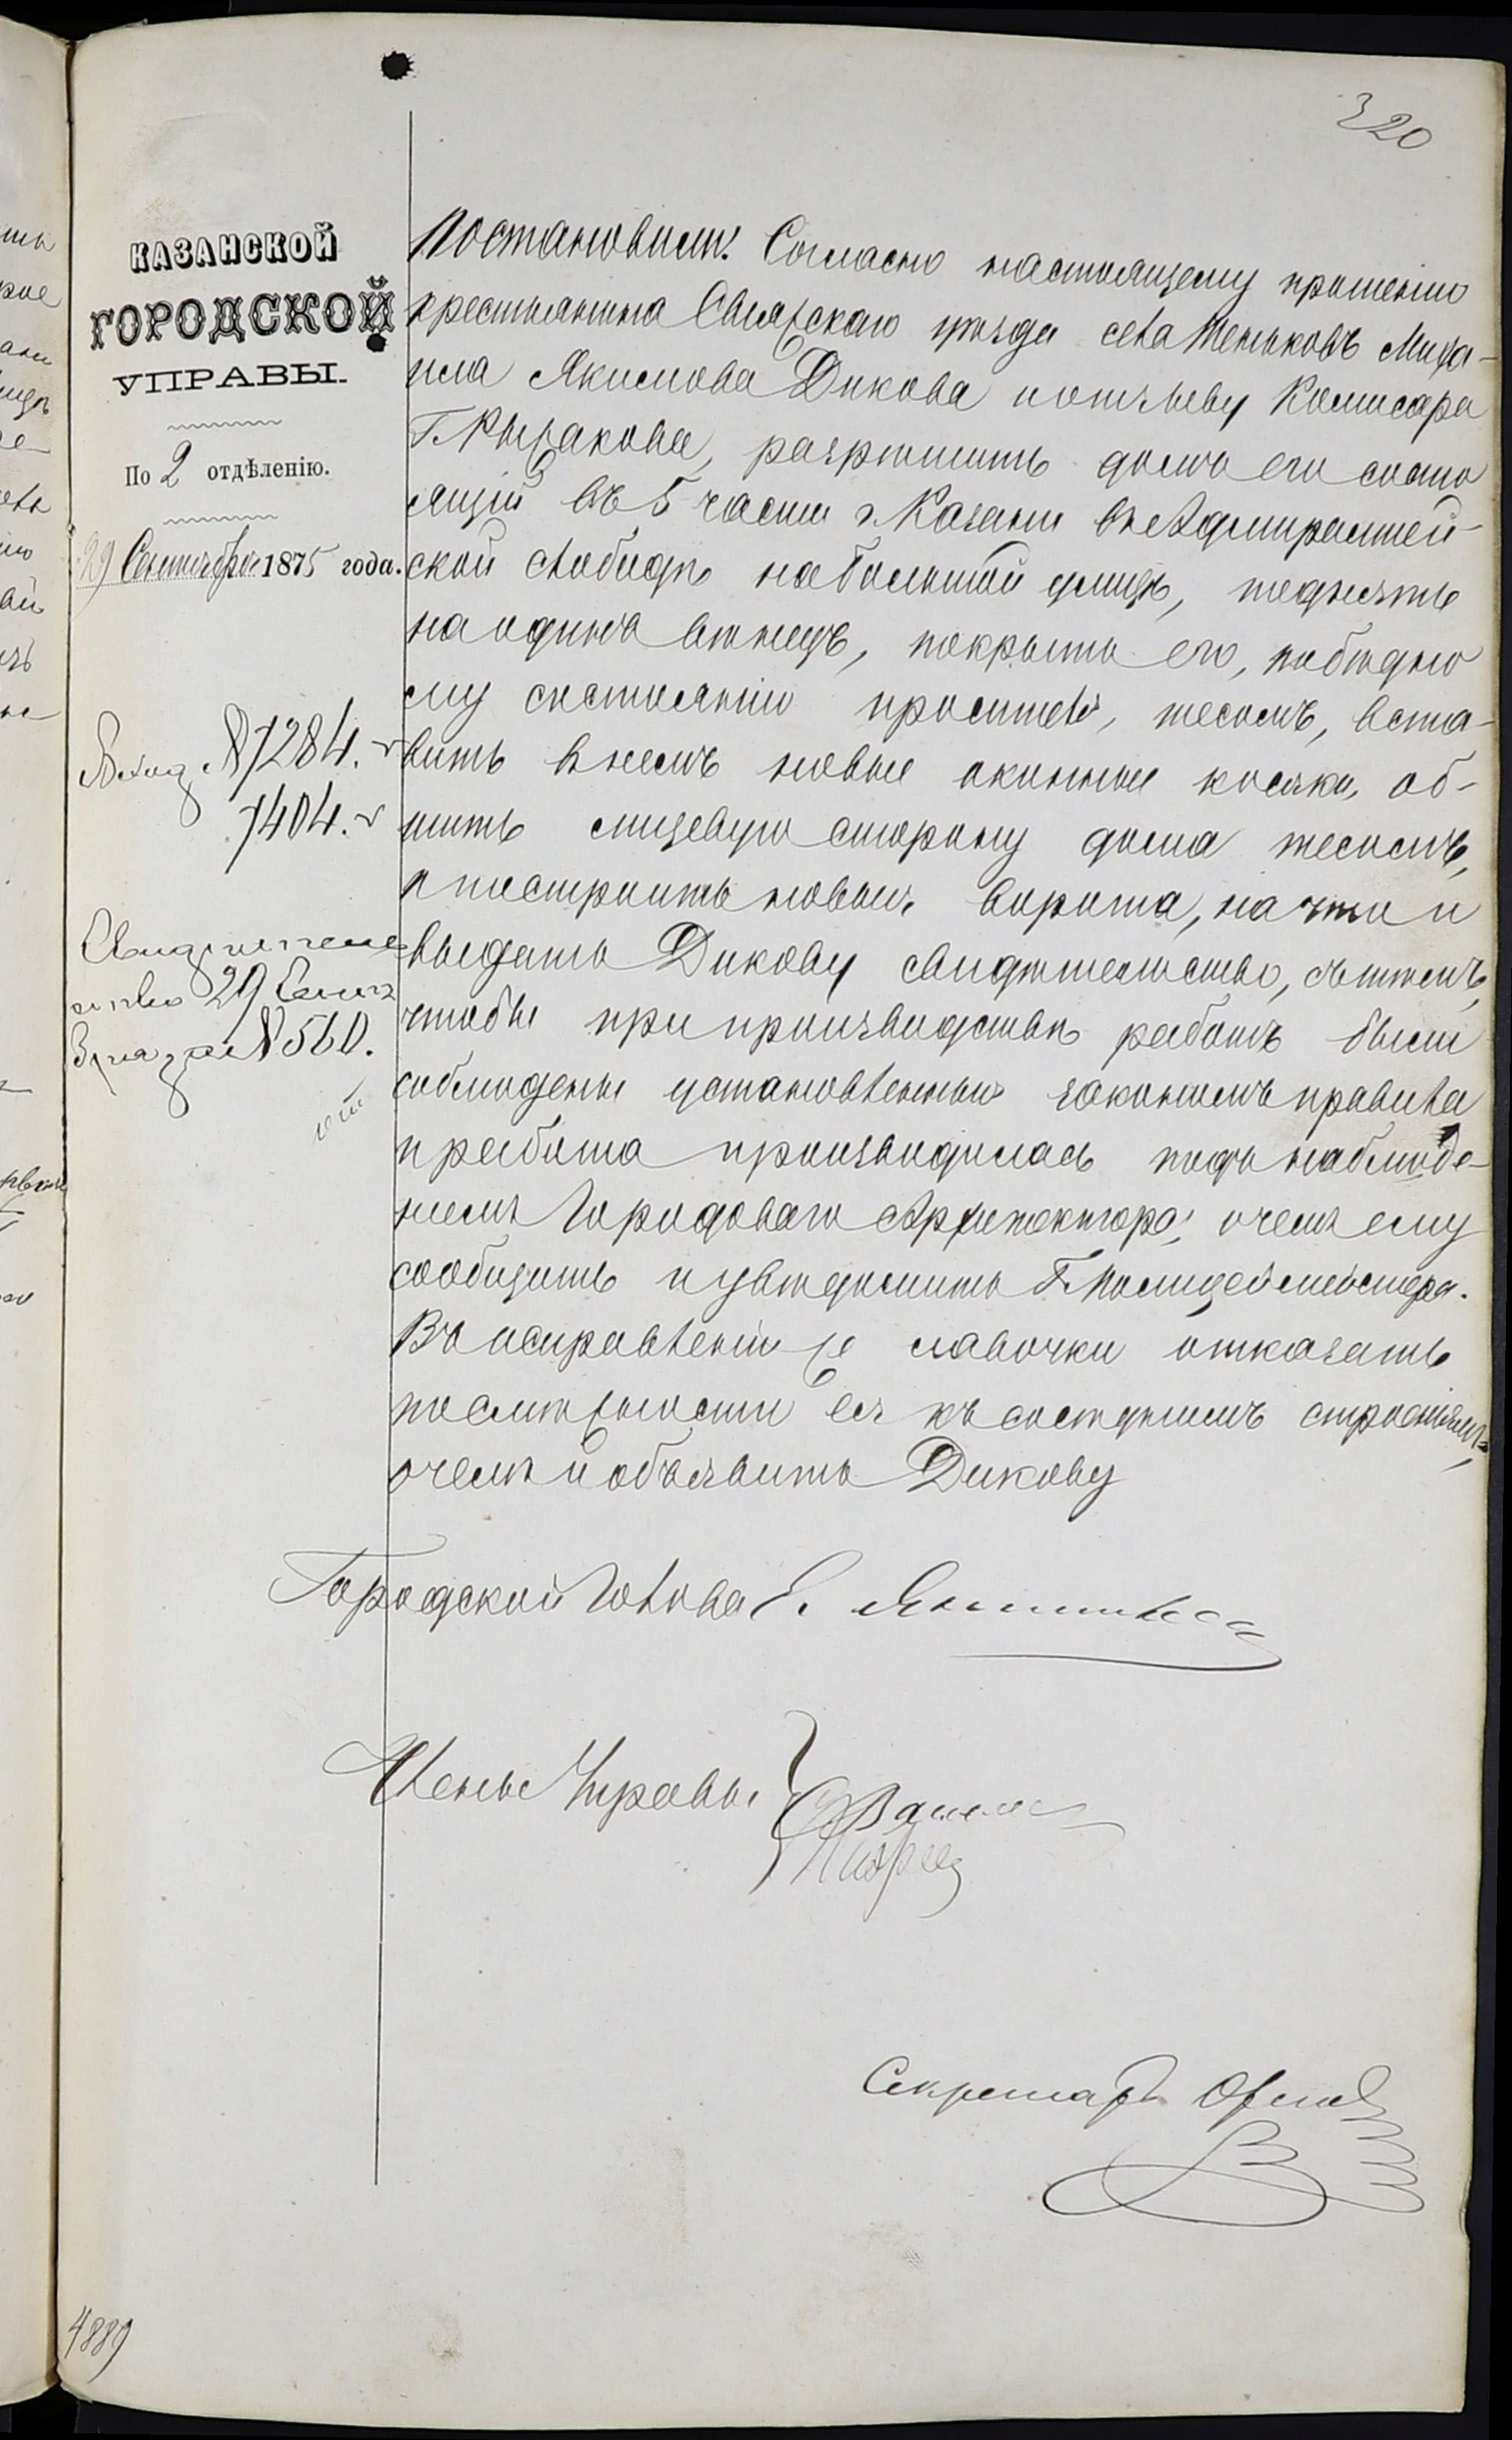 320
КАЗАНСКОЙ
ГОРОДСКОЙ
УПРАВЫ.
По 2 отдѣленію.
29 Сентября 1875 года.
Вход №7284.
7404.
Свидѣтель
ство 29 Сент
за №560.
Постановили: Согласно настоящему прошенію
крестьянина Свіяжскаго уѣзда села Теньковъ Миха-
ила Якимова Дикова и отзыву Комисара
Г. Рыбакова, разрѣшить домъ его состо
ящій въ 5 части г. Казани въ Адмиралтей-
ской слободѣ на большой улицѣ, поднять
на одинъ вѣнецъ, покрыть его, по бѣдно
му состоянію просителя, тесомъ, вста-
вить в немъ новые оконные косяки, об-
шить лицевую сторону дома тесомъ,
и построить новыя ворота, на что и
выдать Дикову свидѣтельство, съ тѣмъ,
чтобы при производствѣ работъ были
соблюдены установленныя закономъ правила
и работа производилась подъ наблюде-
ніемъ Городоваго Архитектора, о чемъ ему
сообщить и увѣдомить Г. Полицеймейстера.
Въ исправленіи же лавочки отказать
по смѣжности ея къ сосѣднимъ строеніямъ,
о чемъ и объявить Дикову
Городской Голова Е.
Члены Управы
Секретарь Орлов
4889